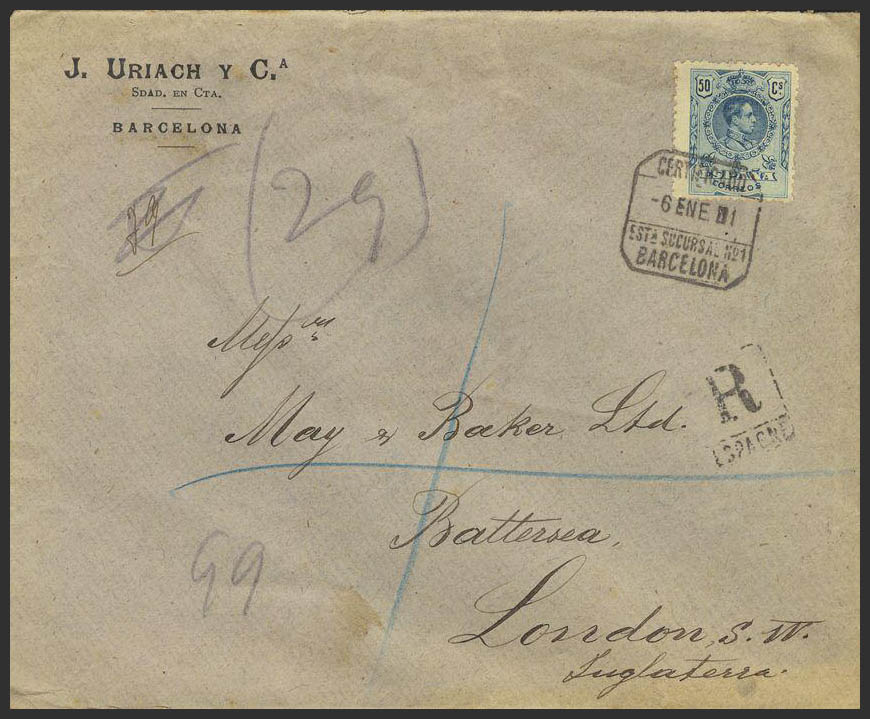 J. URIACH Y C.A
SDAD. EN CTA.
BARCELONA
50 Cs
CORREOS
CERTIFICADO
-6 ENE 11
ESTA SUCURSAL No1
BARCELONA
(29)
79
Messrs
R
ESPAGNE
May & Baker Ltd.
Battersea,
99
London, S. W.
Inglaterra.